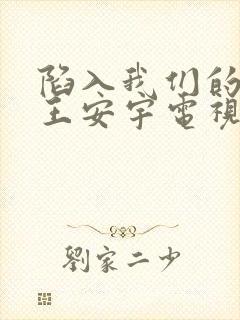 陷入我们的
王安宇電視
劉家二少